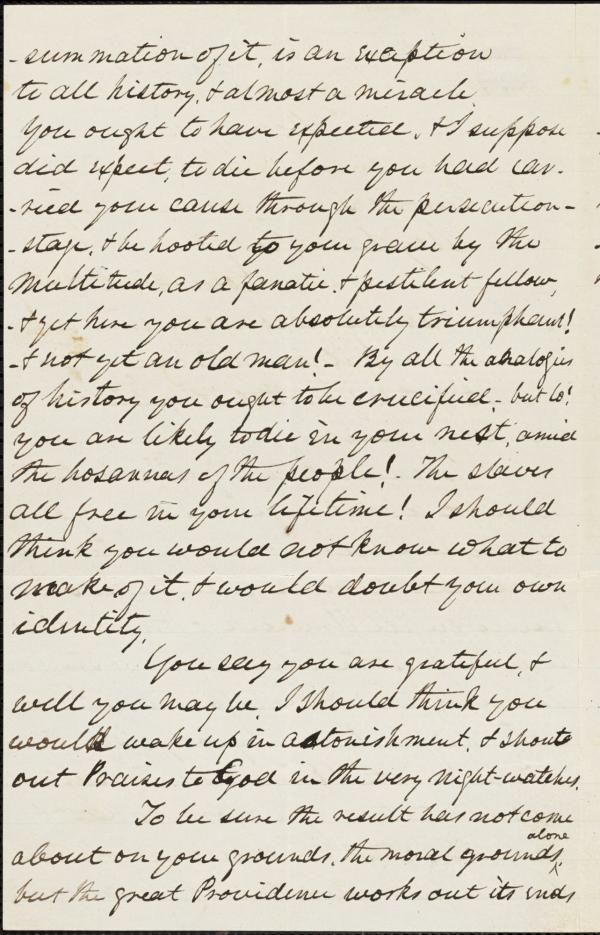 -summation of it, is an exception
to all history, & almost a miracle.
You ought to have expected, & I suppose
did expect, to die before you had car-
-ried your cause through the persecution-
-stage, & be hooted to your grave by the
multitude, as a fanatic & pestilent fellow,
-& yet here you are absolutely triumphant!
-& not yet an old man! - By all the analogies
of history you ought to be crucified - but lo!
you are likely to die in your nest, amid
the hosannas of the people! - The slaves
all free in your lifetime! I should
think you would not know what to
make of it, & would doubt your own
identity.
You say you are grateful, &
well you may be. I should think you
would wake up in astonishment, & shout
out Praises to God in the very night-watches.
To be sure the result has not come
alone
about on your grounds, the moral grounds,
but the great Providence works out its ends